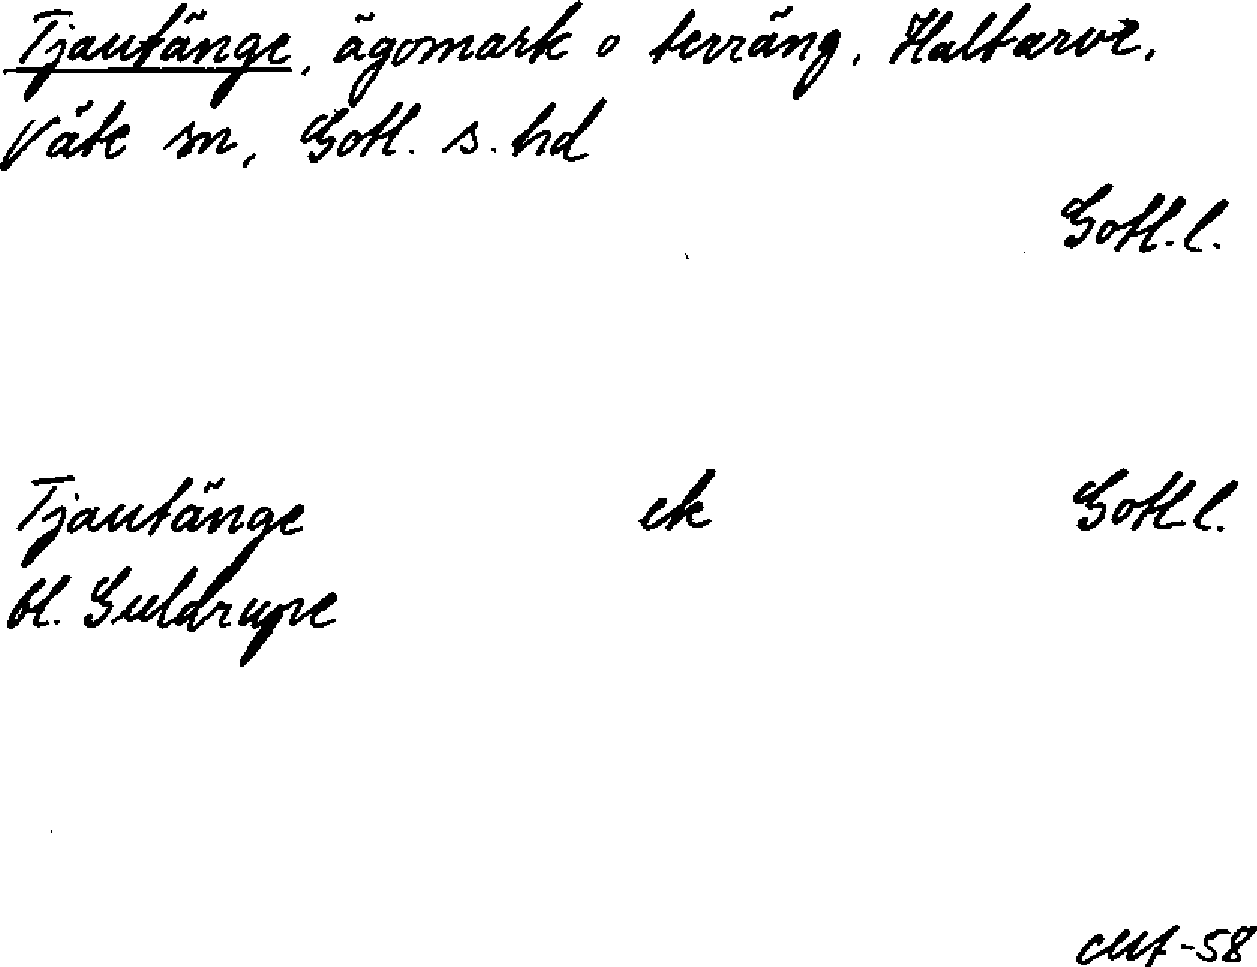 Tjautänge, ägomark o terräng, Haltarve,
Väte sn, Gotl. s. hd
Gotl. l.
Tjautänge ek Gotl. l.
bl. Guldrupe